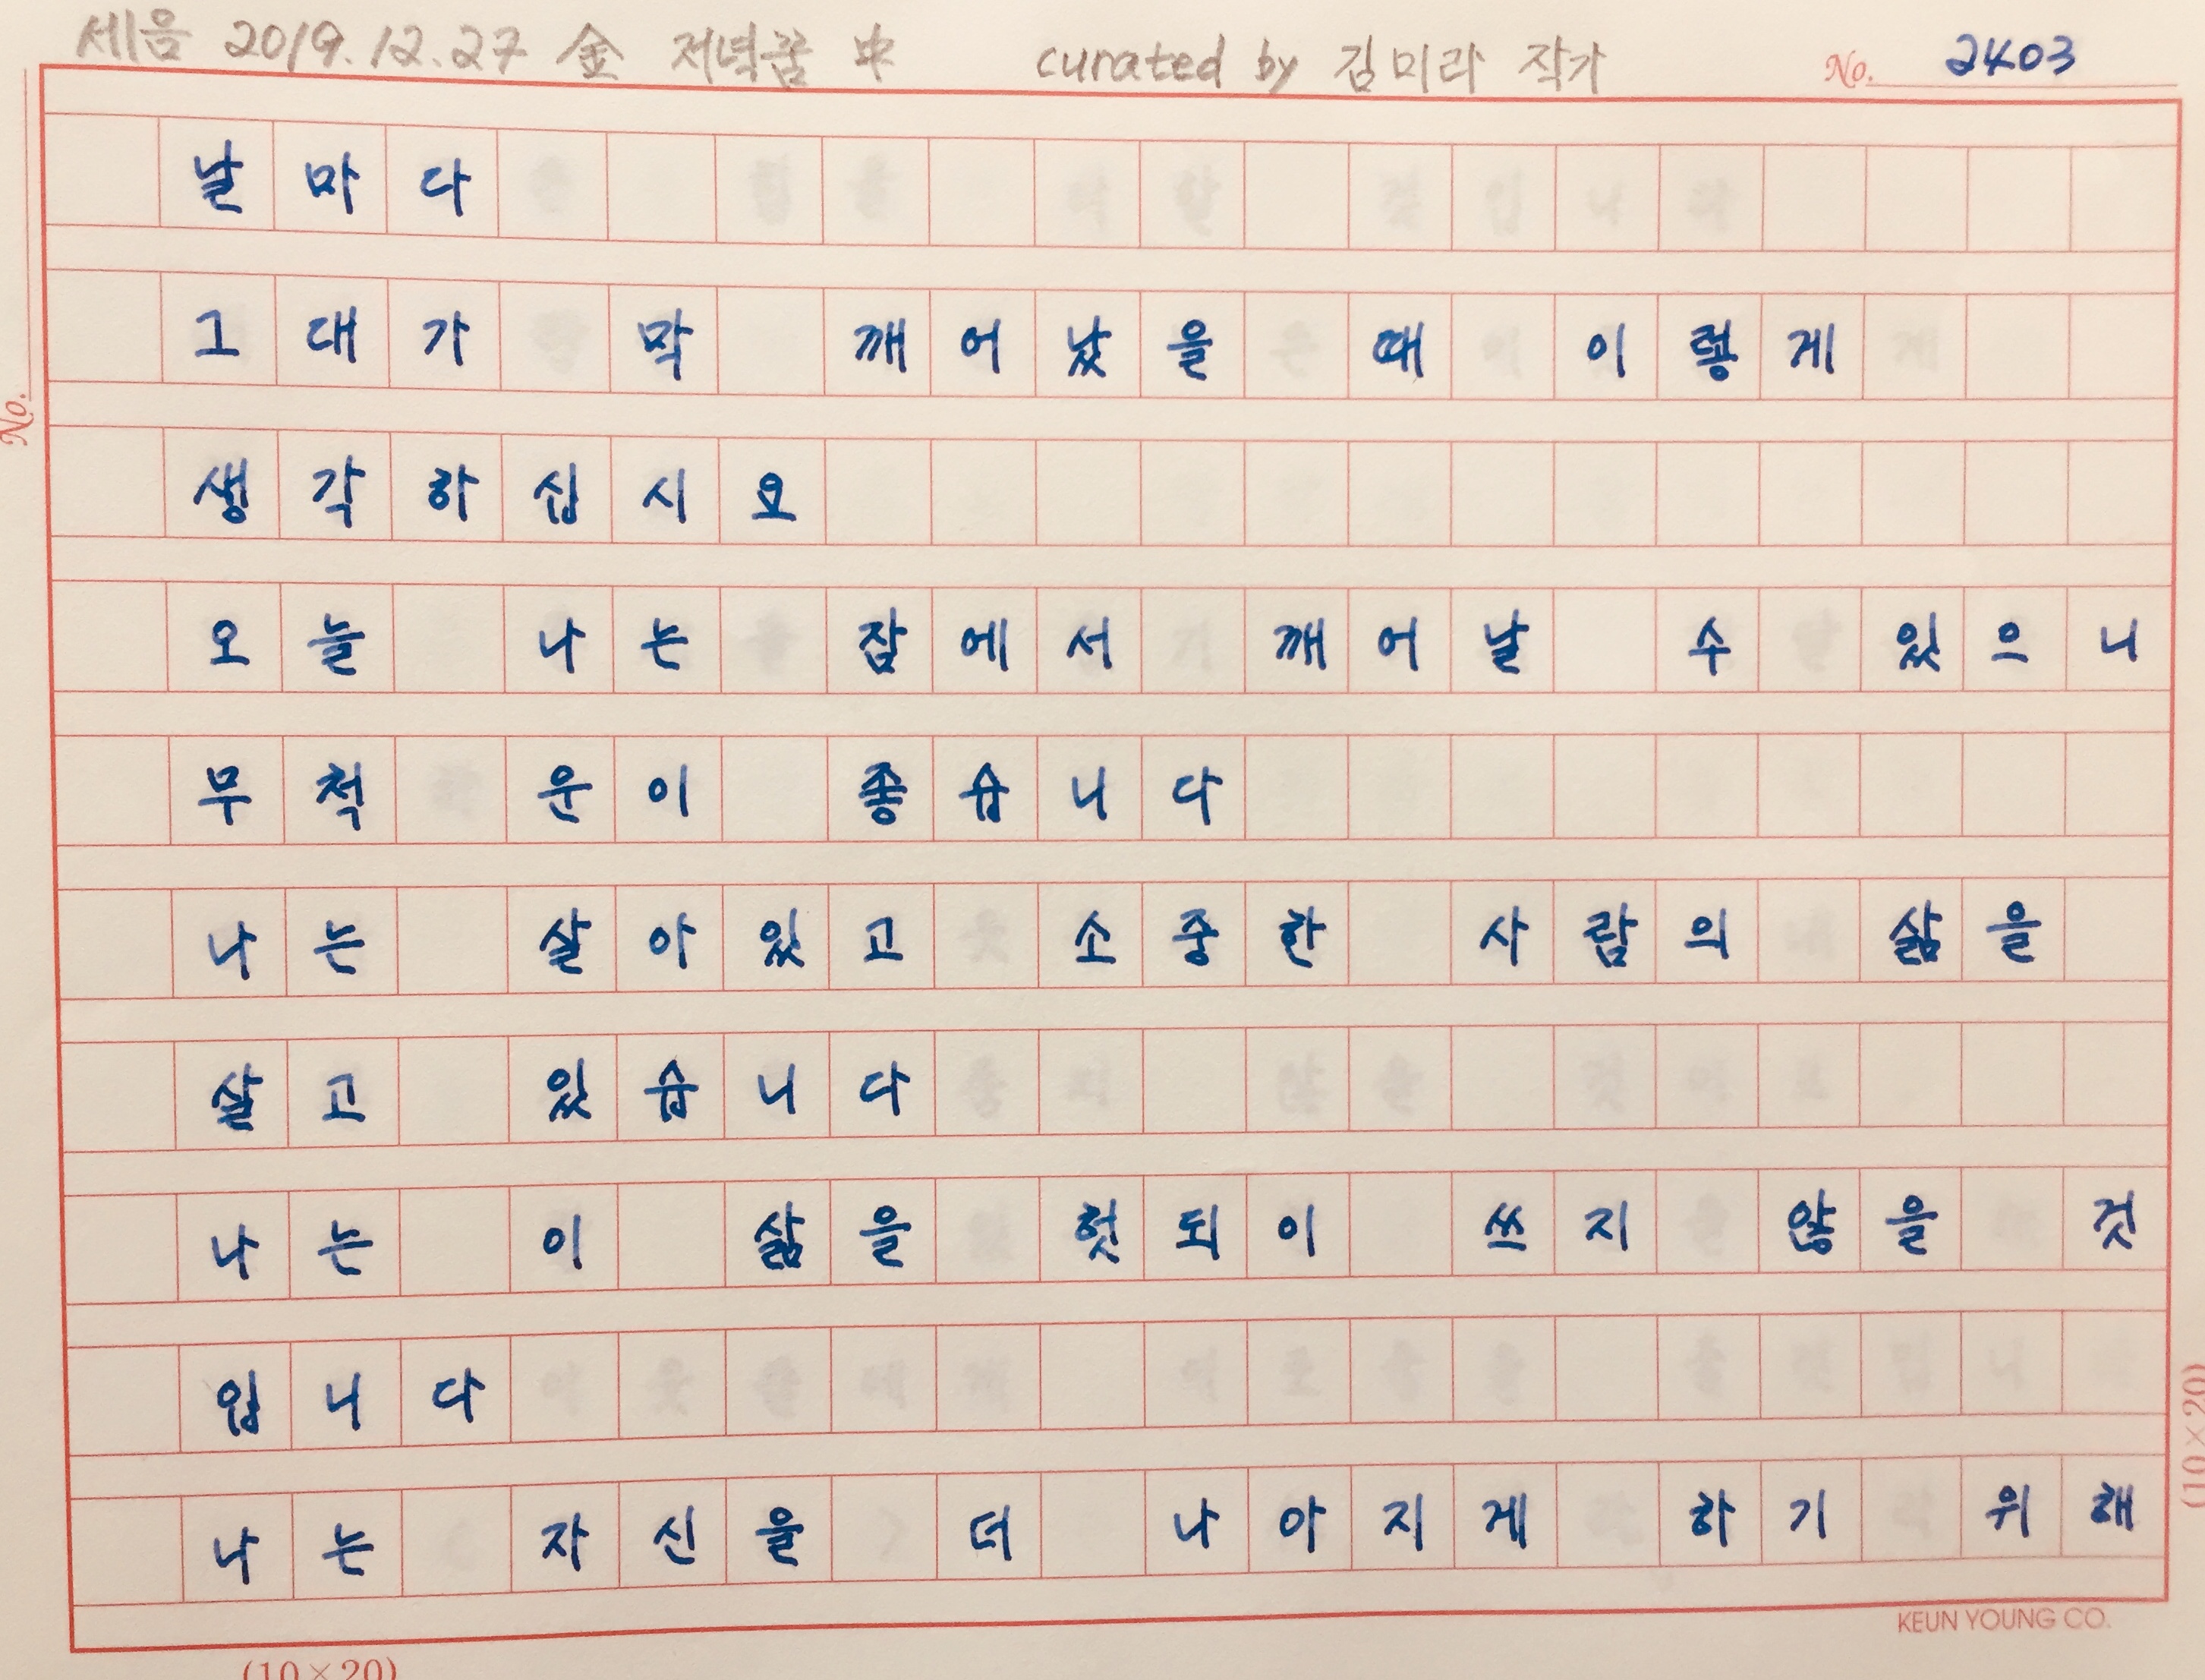 세음 2019.12.27 金 저녁꿈 中 curated by 김미라 작가 No. 2403
날마다
그대가 막 깨어났을 때 이렇게
생각하십시오
No.
오늘 나는 잠에서 깨어날 수 있으니
무척 운이 좋습니다
나는 살아있고 소중한 사람의 삶을
살고 있습니다
나는 이 삶을 헛되이 쓰지 않을 것
입니다
나는 자신을 더 나아지게 하기 위해
(10×20)
KEUN YOUNG CO.
(10×20)